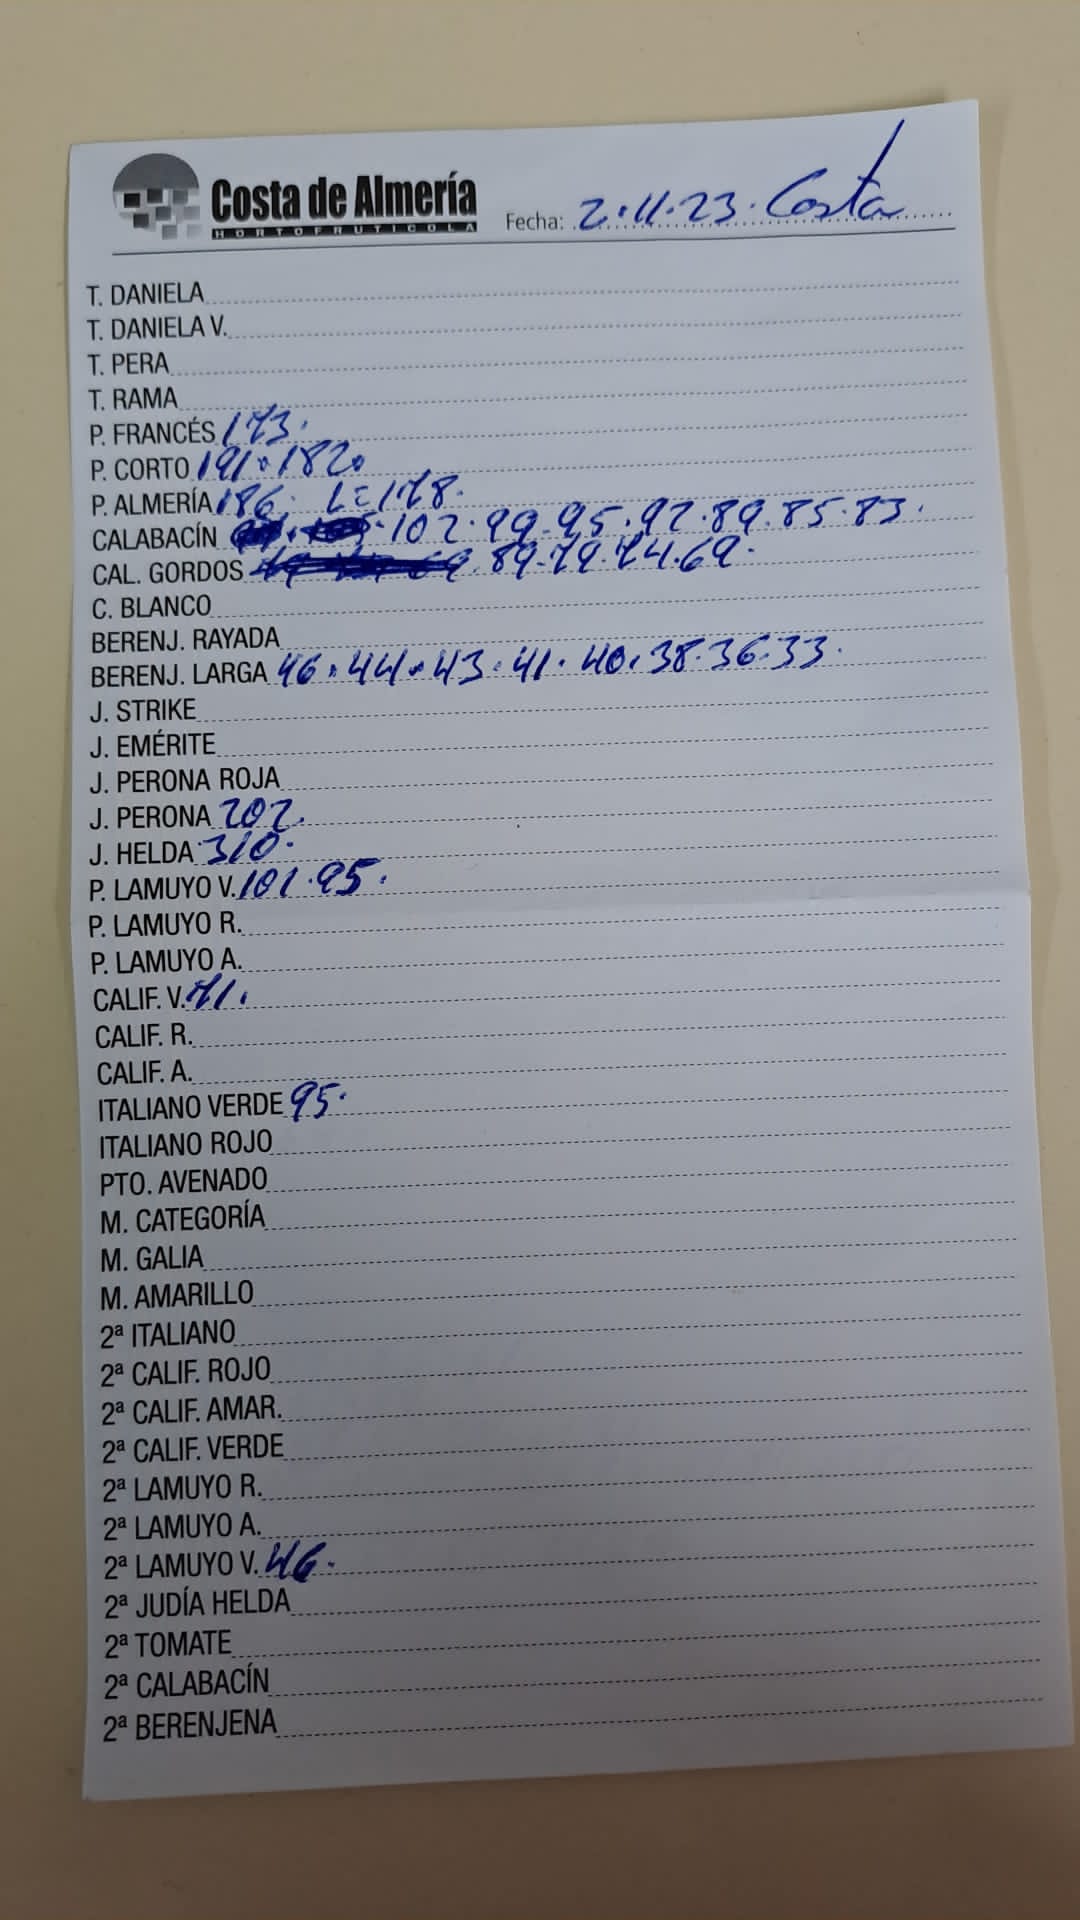 Costa de Almería
HORTOFRUTICOLA
Fecha: 2.11.23. Costa
T. DANIELA
T. DANIELA V.
T. PERA
T. RAMA
P. FRANCÉS 173.
P. CORTO 191.182.
P. ALMERÍA 186. L=178.
CALABACÍN 102.99.95.92.89.85.83.
CAL. GORDOS 89.79.74.69.
C. BLANCO
BERENJ. RAYADA
BERENJ. LARGA 46.44.43.41.40.38.36.33.
J. STRIKE
J. EMÉRITE
J. PERONA ROJA
J. PERONA 202.
J. HELDA 310.
P. LAMUYO V. 101.95.
P. LAMUYO R.
P. LAMUYO A.
CALIF. V. 71.
CALIF. R.
CALIF. A.
ITALIANO VERDE 95.
ITALIANO ROJO
PTO. AVENADO
M. CATEGORÍA
M. GALIA
M. AMARILLO
2ª ITALIANO
2ª CALIF. ROJO
2ª CALIF. AMAR.
2ª CALIF. VERDE
2ª LAMUYO R.
2ª LAMUYO A.
2ª LAMUYO V. 46.
2ª JUDÍA HELDA
2ª TOMATE
2ª CALABACÍN
2ª BERENJENA